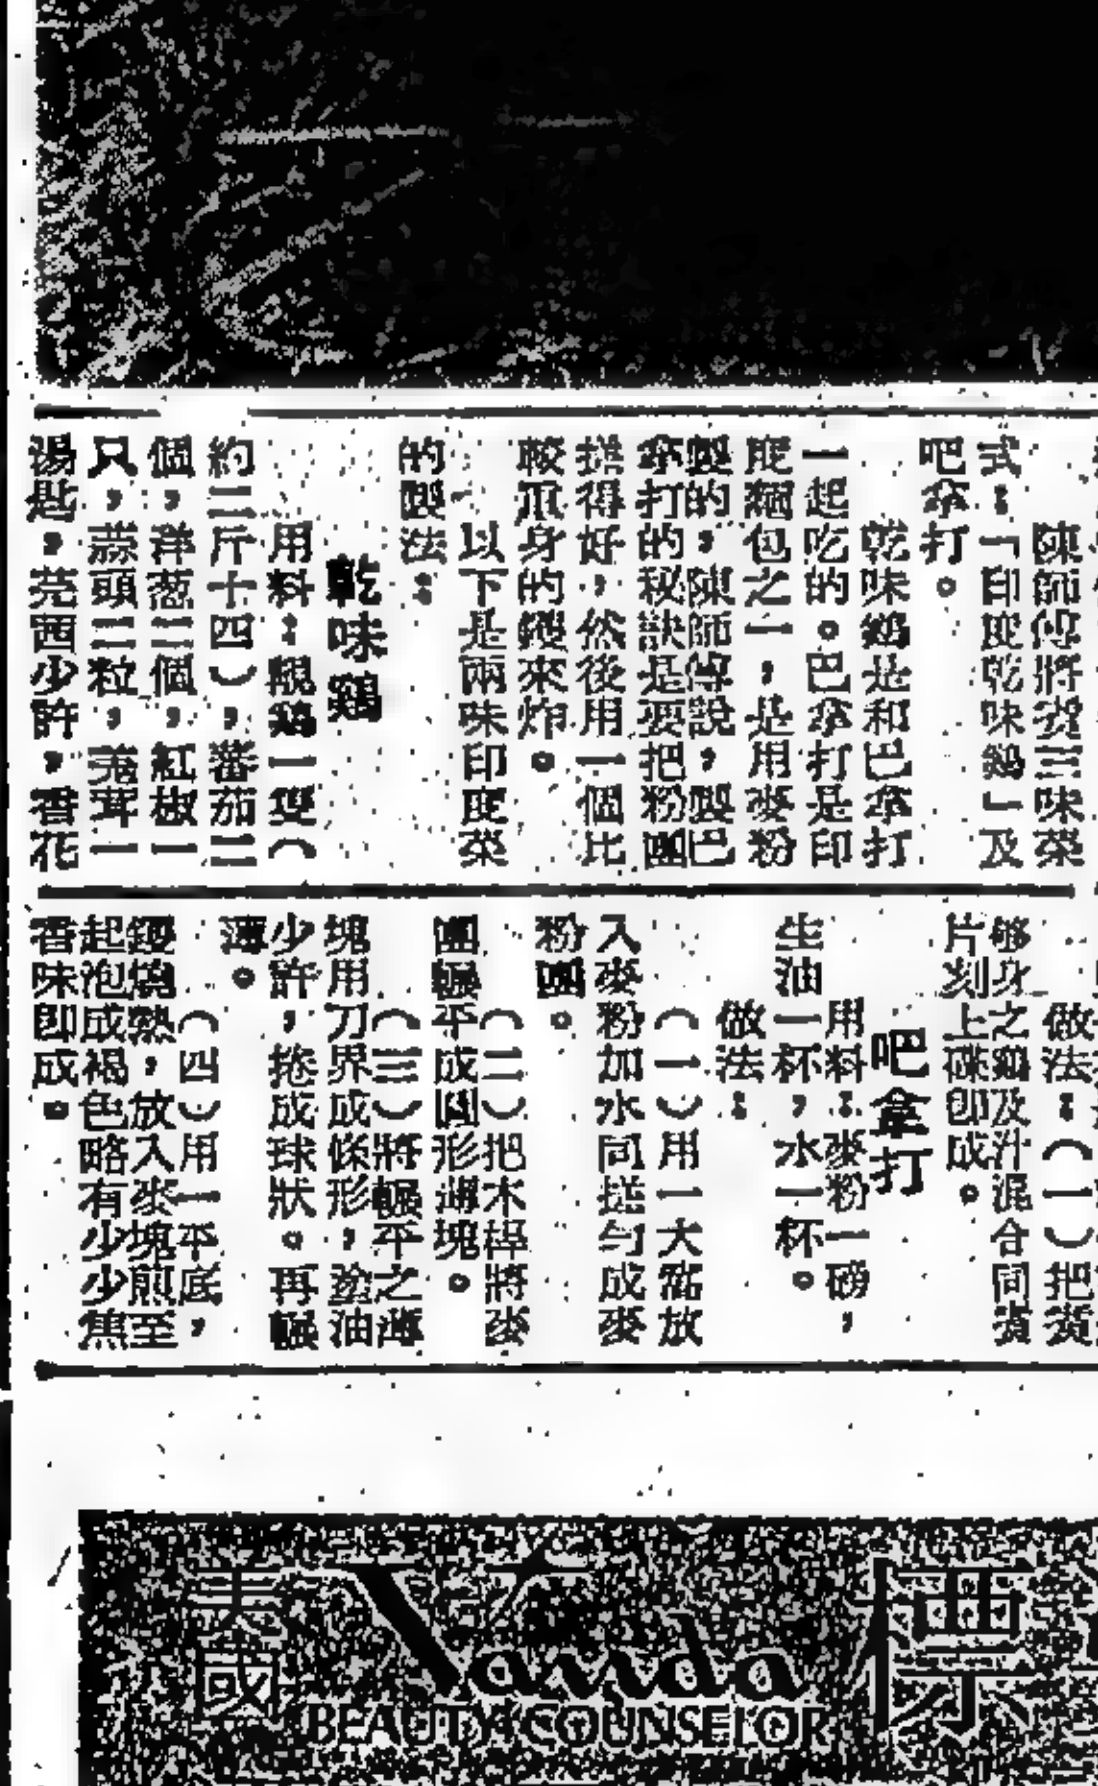 陳師傅將賣三味菜
式:「印度乾味鷄」及
吧拿打。
乾味鷄是和巴拿打
一起吃的。巴拿打是印
度麵包之一,是用麥粉
製的,陳師傅說,製巴
拿打的秘訣是要把粉團
搓得好,然後用一個比
較瓜身的鑊來炸。
以下是兩味印度菜
的製法:
乾味鷄
用料:鷄一隻(
約二斤十四),蕃茄二
個,洋葱二個,紅椒一
只,蒜頭二粒,茸一
湯匙,芫茜少許,香花
做法:(一)把
够身之鷄及汁混合同
片刻上碟即成。
吧拿打
用料:麥粉一磅,
生油一杯,水一杯。
做法:
(一)用一大窩放
入麥粉加水同搓勻成麥
粉團。
(二)把木棍將麥
團輾平成圓形薄塊。
(三)將輾平之薄
塊用刀界成條形,塗油
少許,捲成球狀。再輾
薄。
(四)用一平底
鑊燒熱,放入麥塊煎至
起泡成褐色略有少少焦
香味即成。
美國
Vanda
BEAUTY COUNSELOR
標